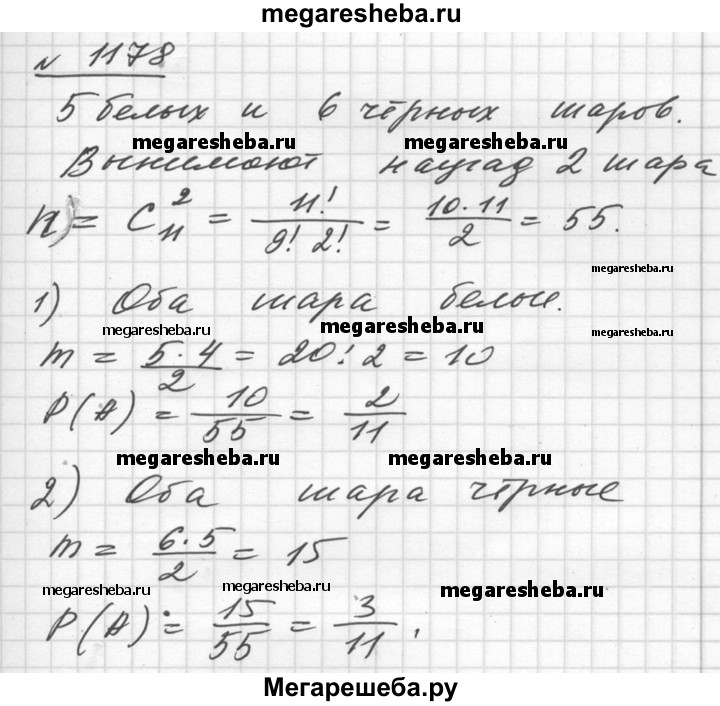 megaresheba.ru
№ 1178
5 белых и 6 чёрных шаров.
megaresheba.ru megaresheba.ru
Вынимают наугад 2 шара
n = C₁₁² = 11!/(9! 2!) = (10·11)/2 = 55.
megaresheba.ru
1) Оба шара белые.
megaresheba.ru megaresheba.ru megaresheba.ru
m = (5·4)/2 = 20:2 = 10
P(A) = 10/55 = 2/11
megaresheba.ru megaresheba.ru
2) Оба шара чёрные
m = (6·5)/2 = 15
megaresheba.ru megaresheba.ru megaresheba.ru
P(A) = 15/55 = 3/11.
Мегарешеба.ру